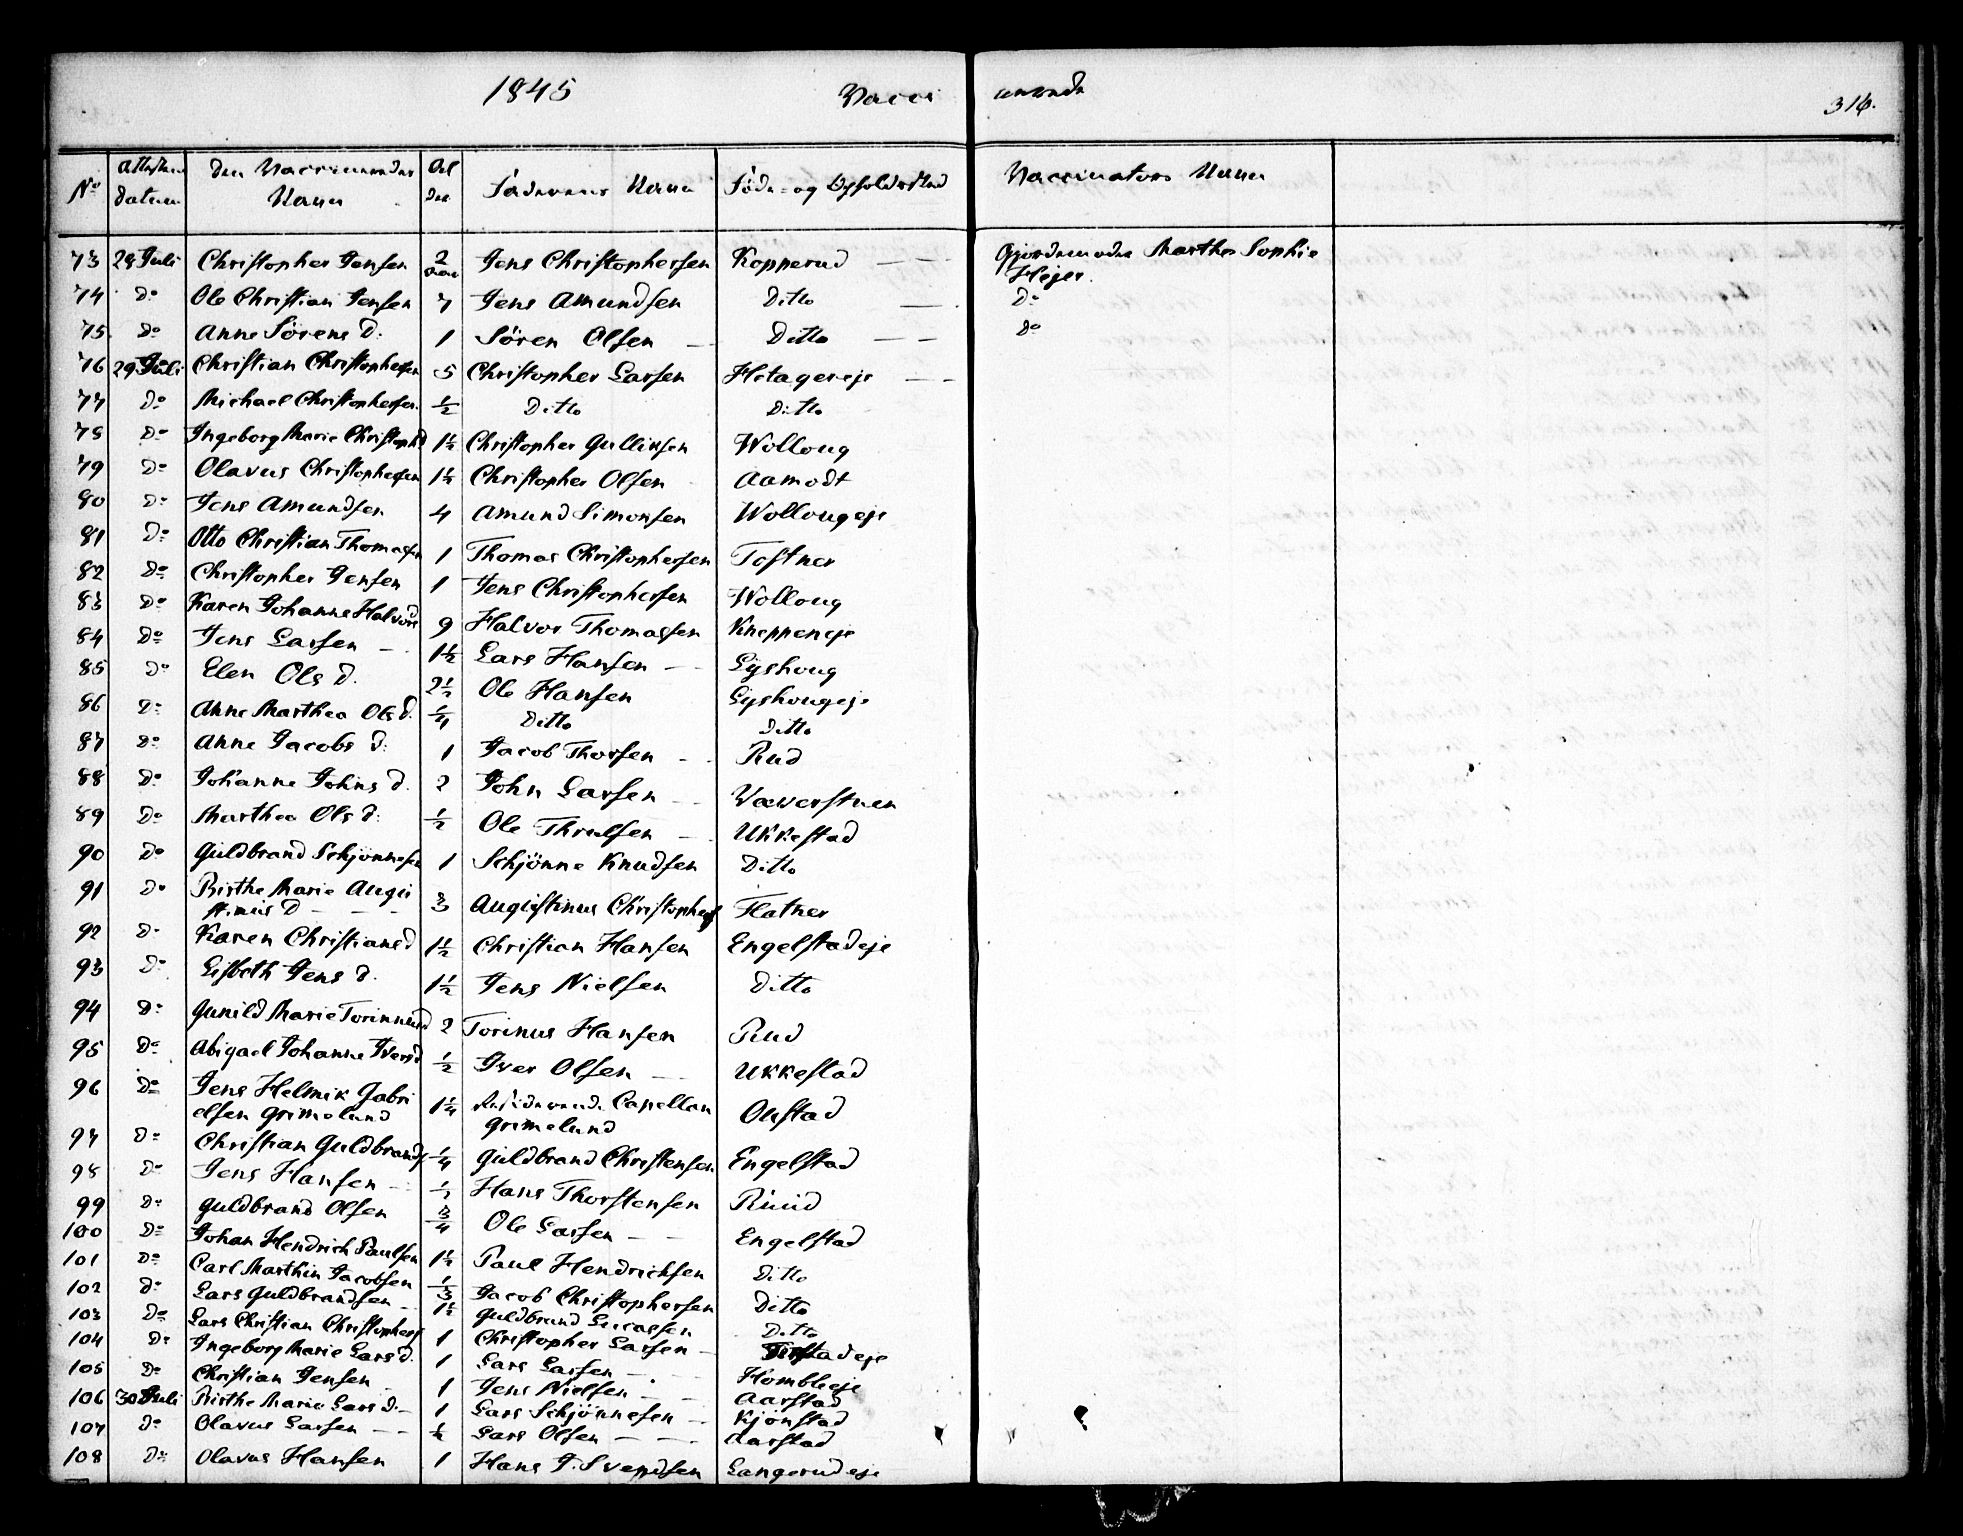 1845 Vacci nerede 316.
No Attestens Datum Den Vaccineredes Navn Al der Faderens Navn Föde- og Opholdssted Vaccinators Navn
73 28 Juli Christopher Jensen 2 Jens Christophersen Kopperud — — Gjordemoder Marthe Sophie
Højer.
74 Do Ole Christian Jensen 7 Jens Amundsen Ditto — Do
75 Do Anne Sørens d. 1 Sören Olsen — Ditto — — Do
76 29 Juli Christian Christophersen 5 Christopher Larsen Hetagereje — —
77 Do Michael Christophersen 1/2 Ditto Ditto
78 Do Ingeborg Marie Christophd 1½ Christopher Gullixsen Wolloug
79 Do Olavus Christophersen 1½ Christopher Olsen Aamodt
80 Do Jens Amundsen 4 Amund Simonsen Wollougeje
81 Do Otto Christian Thomassen 1 Thomas Christophersen Tostner
82 Do Christopher Jensen 1 Jens Christophersen Wolloug
83 Do Karen Johanne Halvorsd 9 Halvor Thomassen Kneppeneje
84 Do Jens Larsen — 1½ Lars Hansen — Lyshoug
85 Do Elen Ols d. 2½ Ole Hansen Lyshougeje
86 Do Anne Marthea Ols d. 1/4 Ditto Ditto
87 Do Anne Jacobs d. 1 Jacob Thorsen — Rud
88 Do Johanne Johns d. 2 John Larsen — Wæverstuen
89 Do Marthea Ols d. 1/2 Ole Thrulsen — Ukkestad
90 Do Guldbrand Schjönnesen 1 Schjönne Knudsen Ditto
91 Do Birthe Marie Augu
stinus D — — — 3 Augustinus Christophers Flatner
92 D. Karen Christians d 1½ Christian Hansen Engelstadeje
93 Do Lisbeth Jens d. 1½ Jens Nielsen Ditto
94 Do Gunild Marie Torinusd 2 Torinus Hansen Rud
95 Do Abigael Johanne Iversd 1/2 Iver Olsen — Ukkestad
96 Do Jens Helmik Gabri
elsen Grimelund 1¼ Residerende Capellan Onstad
Grimelund
97 Do Christian Guldbrands 1/4 Guldbrand Christensen Engelstad
98 Do Jens Hansen — 1/2 Hans Thorstensen Ruud
99 Do Guldbrand Olsen 3/4 Ole Larsen — — Engelstad
100 Do Johan Hendrich Paulsen 1½ Paul Hendrichsen Ditto
101 Do Carl Marthin Jacobsen 1/3 Jacob Christophersen Ditto
102 Do Lars Guldbrandsen 1½ Guldbrand Lucassen Ditto
103 Do Lars Christian Christophers 1 Christopher Larsen — stadeje
104 Do Ingeborg Marie Lars d. 1 Lars Larsen — Hombleeje
105 Do Christian Jensen 1 Jens Nielsen — — Aarstad
106 30 Juli Birthe Marie Lars d. — 1 Lars Schjönnesen — Kjönstad
107 Do Olavus Larsen — — ½ Lars Olsen — — Aarstad
108 Do Olavus Hansen 1 Hans J. Svendsen Langerudeje